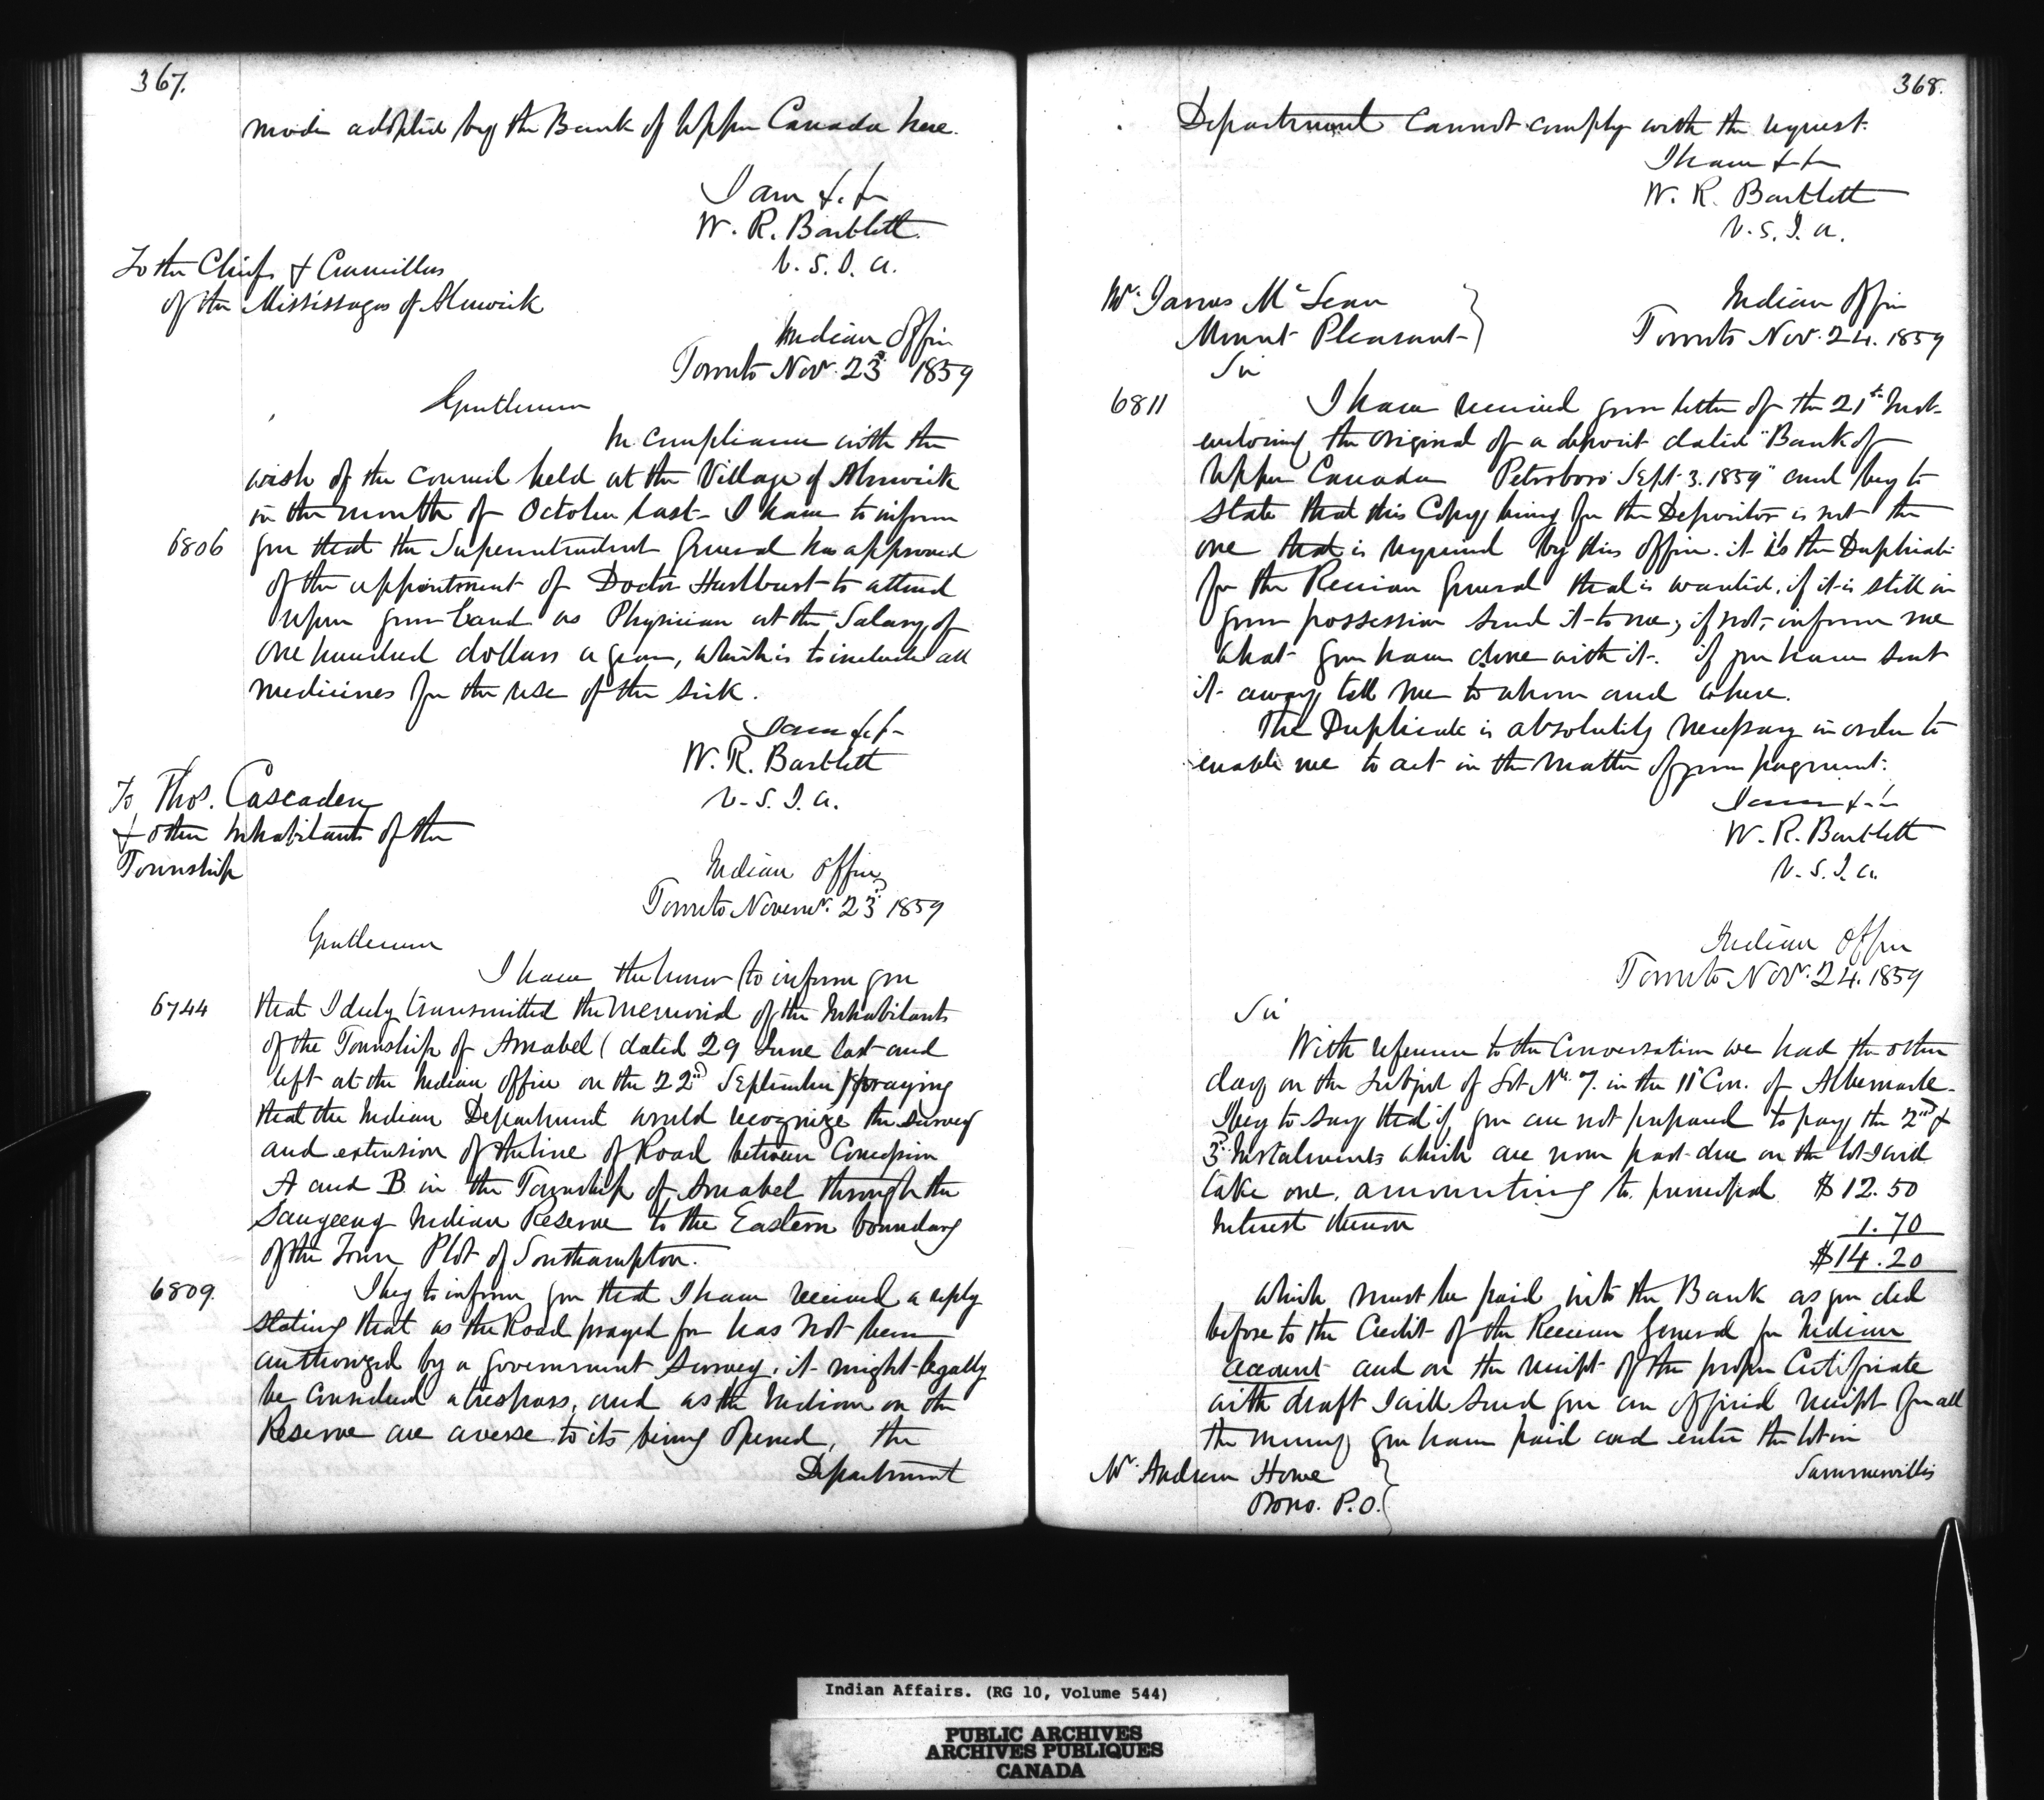 367.
mode adopted by the Bank of Upper Canada here.
I am &. &c
W. R. Bartlett.
V. S. I. A.
To the Chiefs & Councillors
of the Mississagas of Alnwick
Indian Office
Toronto Nov. 23d 1859
Gentlemen
In compliance with the
wish of the Council held at the Village of Alnwick
in the month of October last - I have to inform
6806 you that the Superintendent General has approved
of the appointment of Doctor Hurlburt to attend
upon your band as Physician at the Salary of
one hundred dollars a year, which is to include all
medicines for the use of the sick.
I am &. &c
W. R. Bartlett
V. S. I. A.
To Thos. Cascaden
& other Inhabitants of the
Township
Indian Office
Toronto Novemr. 23d 1859
Gentlemen
I have the honor to inform you
6744 that I duly transmitted the memorial of the Inhabitants
of the Township of Amabel (dated 29 June last and
left at the Indian Office on the 22nd September) praying
that the Indian Department would recognize the survey
and extension of the line of Road between Concession
A and B in the Township of Amabel through the
Saugeeng Indian Reserve to the Eastern boundary
of the Town Plot of Southampton.
6809. I beg to inform you that I have received a reply
stating that as the Road prayed for has not been
authorized by a government survey, it might legally
be considered a trespass, and as the Indians on the
Reserve are averse to its being opened, the
Department
368.
Department cannot comply with the request.
I have &. &c
W. R. Bartlett
V. S. I. A.
Mr. James McLean
Mount Pleasant
Indian Office
Toronto Nov. 24. 1859
Sir
6811 I have received your letter of the 21st Inst.
enclosing the original of a deposit dated "Bank of
Upper Canada Peterboro Sept. 3. 1859" and beg to
state that this Copy being for the Depositor is not the
one that is required by this office. it is the Duplicate
for the Receiver General that is wanted. if it is still in
your possession send it to me; if not, inform me
what you have done with it. if you have sent
it away tell me to whom and where.
The Duplicate is absolutely necessary in order to
enable me to act in the matter of your payment.
I am &. &c
W. R. Bartlett
V. S. I. A.
Indian Office
Toronto Nov. 24. 1859
Sir
With reference to the Conversation we had the other
day on the subject of Lot No. 7. in the 11th Con. of Albemarle.
I beg to say that if you are not prepared to pay the 2nd &
3d Instalments which are now past due on the lot I will
take one, amounting to principal $12.50
Interest thereon 1.70
$14.20
which must be paid into the Bank as you did
before to the Credit of the Receiver General for Indian
account and on the receipt of the proper Certificate
with draft I will send you an official receipt for all
the money you have paid and enter the lot in
Mr. Andrew Howe
Orono. P.O.
Summervilles
Indian Affairs. (RG 10, Volume 544)
PUBLIC ARCHIVES
ARCHIVES PUBLIQUES
CANADA